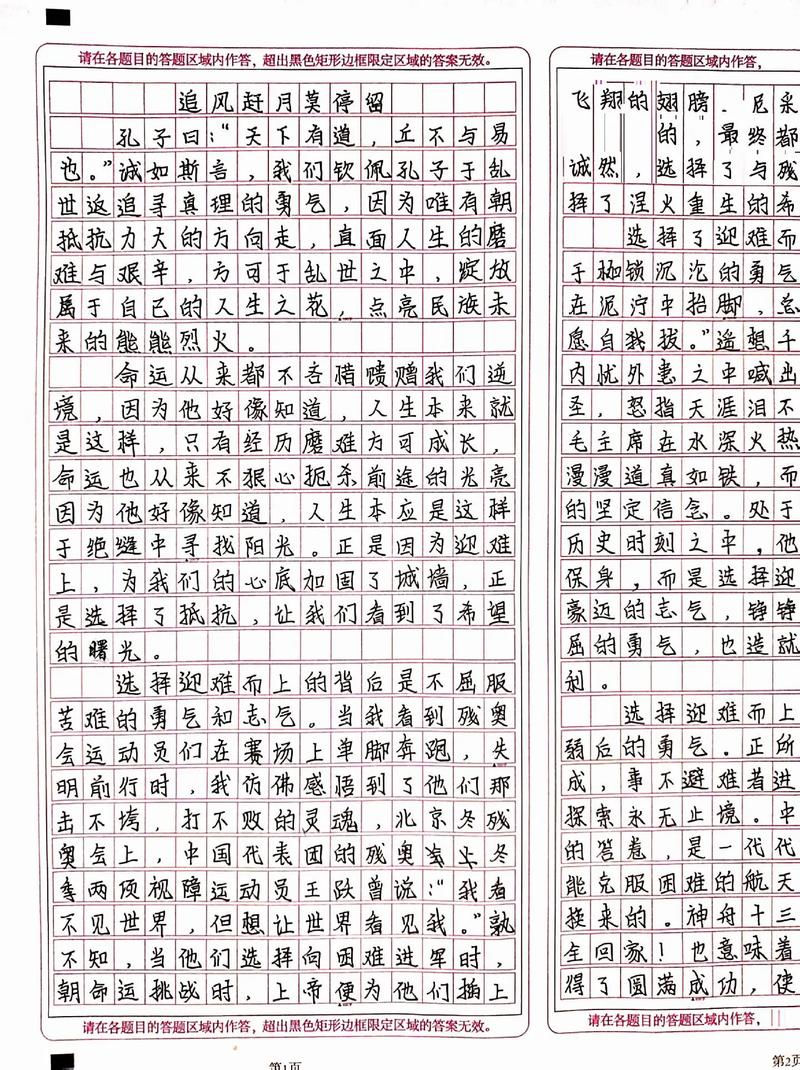 请在各题目的答题区域内作答，超出黑色矩形边框限定区域的答案无效。
追风赶月莫停留
孔子曰：“天下有道，丘不与易
也。”诚如斯言，我们钦佩孔子于乱
世返追寻真理的勇气，因为唯有朝
抵抗力大的方向走，直面人生的磨
难与艰辛，方可于乱世之中，绽放
属于自己的人生之花，点亮民族未
来的熊熊烈火。
命运从来都不吝惜馈赠我们逆
境，因为他好像知道，人生本来就
是这样，只有经历磨难方可成长，
命运也从来不狠心扼杀前途的光亮
因为他好像知道，人生本应是这样
于绝缝中寻找阳光。正是因为迎难
上，为我们的心底加固了城墙，正
是选择了抵抗，让我们看到了希望
的曙光。
选择迎难而上的背后是不屈服
苦难的勇气和志气。当我看到残奥
会运动员们在赛场上单脚奔跑，失
明前行时，我仿佛感悟到了他们那
击不垮，打不败的灵魂，北京冬残
奥会上，中国代表团的残奥会上冬
季两项视障运动员王跃曾说：“我看
不见世界，但想让世界看见我。”孰
不知，当他们选择向困难进军时，
朝命运挑战时，上帝便为他们插上
请在各题目的答题区域内作答，超出黑色矩形边框限定区域的答案无效。
第1页
请在各题目的答题区域内作答，
飞翔的翅膀．尼采
的，最终都
诚然，选择了与残
择了涅火重生的希
选择了迎难而
于枷锁沉沦的勇气
在泥泞中抬脚，总
愿自我拔。”遥想千
内忧外患之中喊出
圣，怒指天涯泪不
毛主席在水深火热
漫漫道真如铁，而
的坚定信念。处于
历史时刻之中，他
保身，而是选择迎
豪迈的志气，铮铮
屈的勇气，也造就
利。
选择迎难而上
弱后的勇气。正所
成，事不避难者进
探索永无止境。中
的答卷，是一代代
能克服困难的航天
换来的。神舟十三
全回家！也意味着
得了圆满成功，使
请在各题目的答题区域内作答，
第2页